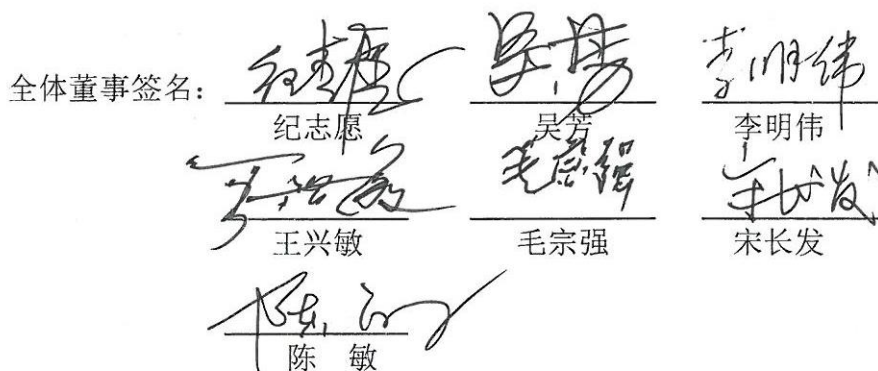 全体董事签名：
纪志愿 吴芳 李明伟
王兴敏 毛宗强 宋长发
陈 敏